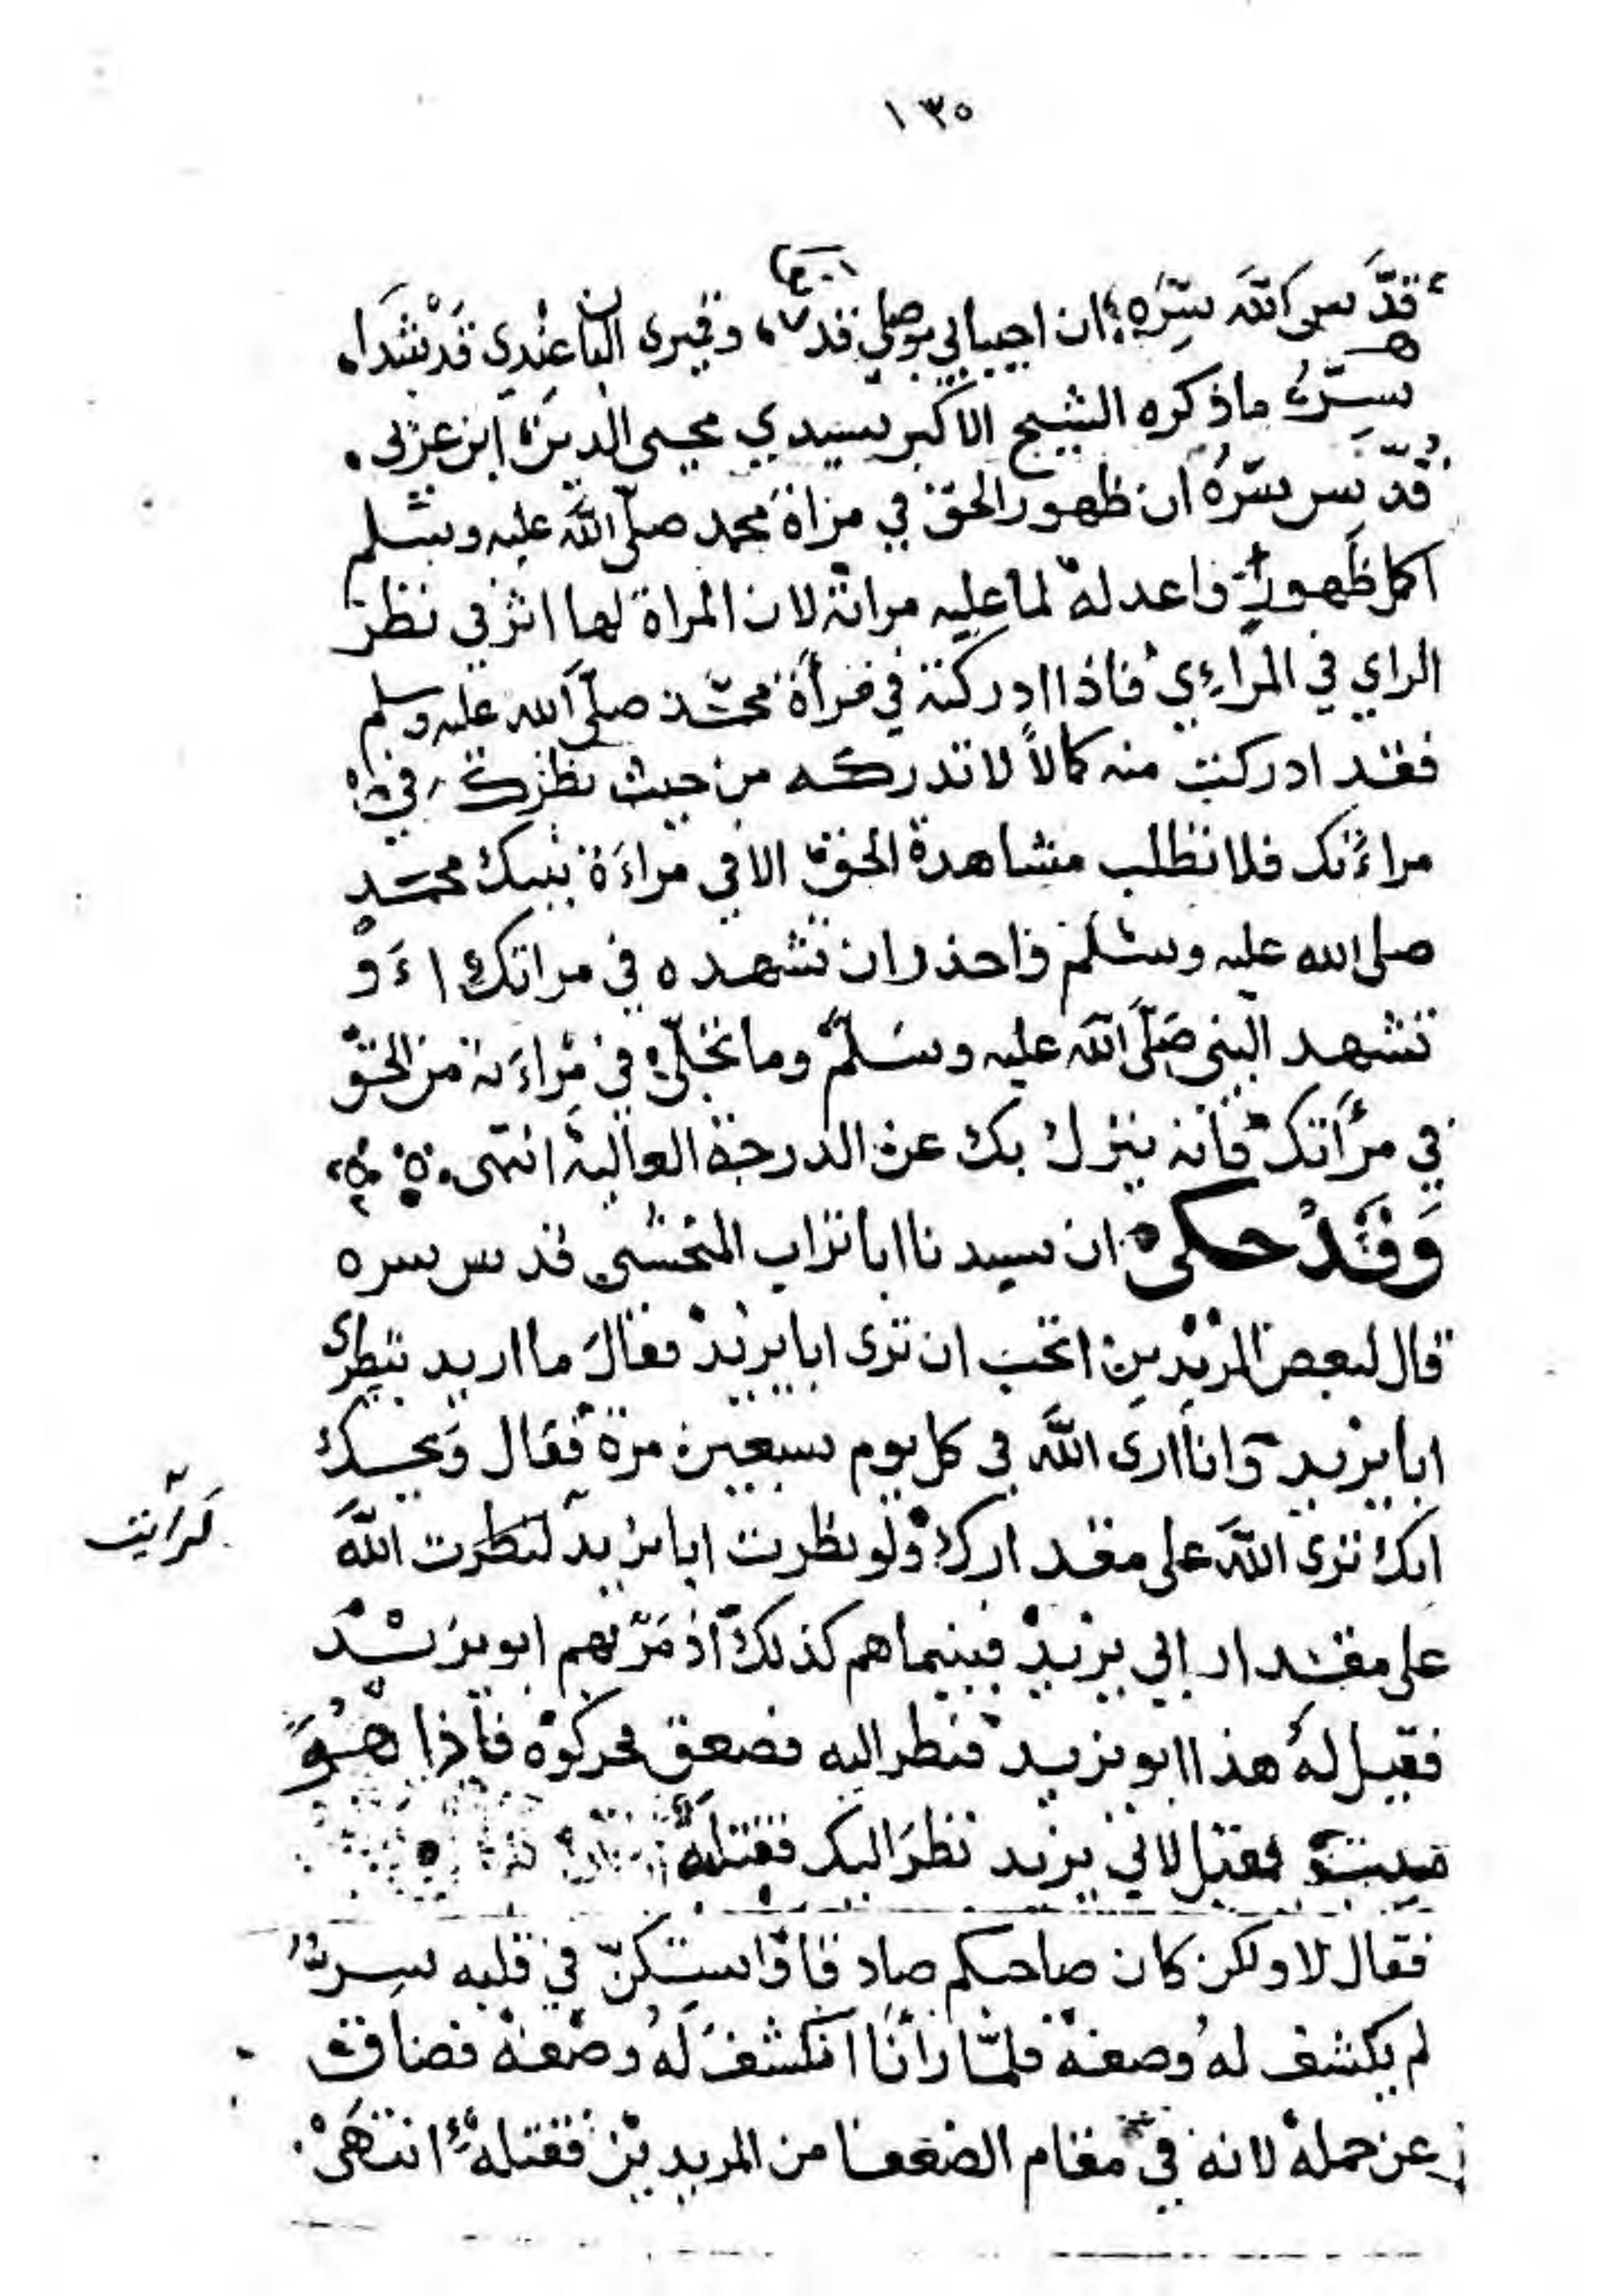 ١٣٥
قدّس الله سِرّه ان احبابي بوصلي قد وقمرى البان عندي قد شدا
سِرّه ما ذكره الشيخ الاكبر سيدي محيى الدين ابن عربى
قدّس سرّهُ ان ظهور الحق في مراة محمد صلّى الله عليه وسلم
اكمل ظهور واعدله لما عليه مراته لان المراة لها اثر في نظر
الراي في المراءي فاذا ادركته في مرأة محمّد صلّى الله عليه وسلم
فقد ادركت منه كمالاً لا تدركه من حيث نظرك في
مراءتك فلا تطلب مشاهدة الحق الا في مراءة نبيك محمّدٍ
صلى الله عليه وسلم واحذر ان تشهده في مراتك اءَو
تشهد النبي صَلّى الله عليه وسَلم وما تجلّى في مراءَته من الحق
في مرأتك فانه ينزل بك عن الدرجة العالية انتهى
وَقَدْ حكى ان سيدنا ابا تراب النخشبي قدس سره
قال لبعض المريدين اتحب ان ترى ابا يزيد فقال ما اريد بنظرى
ابا يزيد وانا ارى الله في كل يوم سبعين مرة فقال وَيحك
انك ترى الله على مقدارك ولو نظرت ابا يزيد لنظرت الله
لرايت
على مقدار ابي يزيد فبينما هم كذلك اذ مَرّ بهم ابو يزيد
فقيل لهُ هذا ابو يزيد فنظر اليه فصعق فحركوه فاذا هُوَ
ميت فقيل لابي يزيد نظرَ اليك فقتله
فقال لا ولكن كان صاحبكم صادقا واستكنّ في قلبه سرّ
لم يكشف لهُ وصفه فلمّا رأنا انكشفَ لَهُ وصفه فضاق
عن حمله لانه في مقام الضعفا من المريدين فقتله انتهَىْ